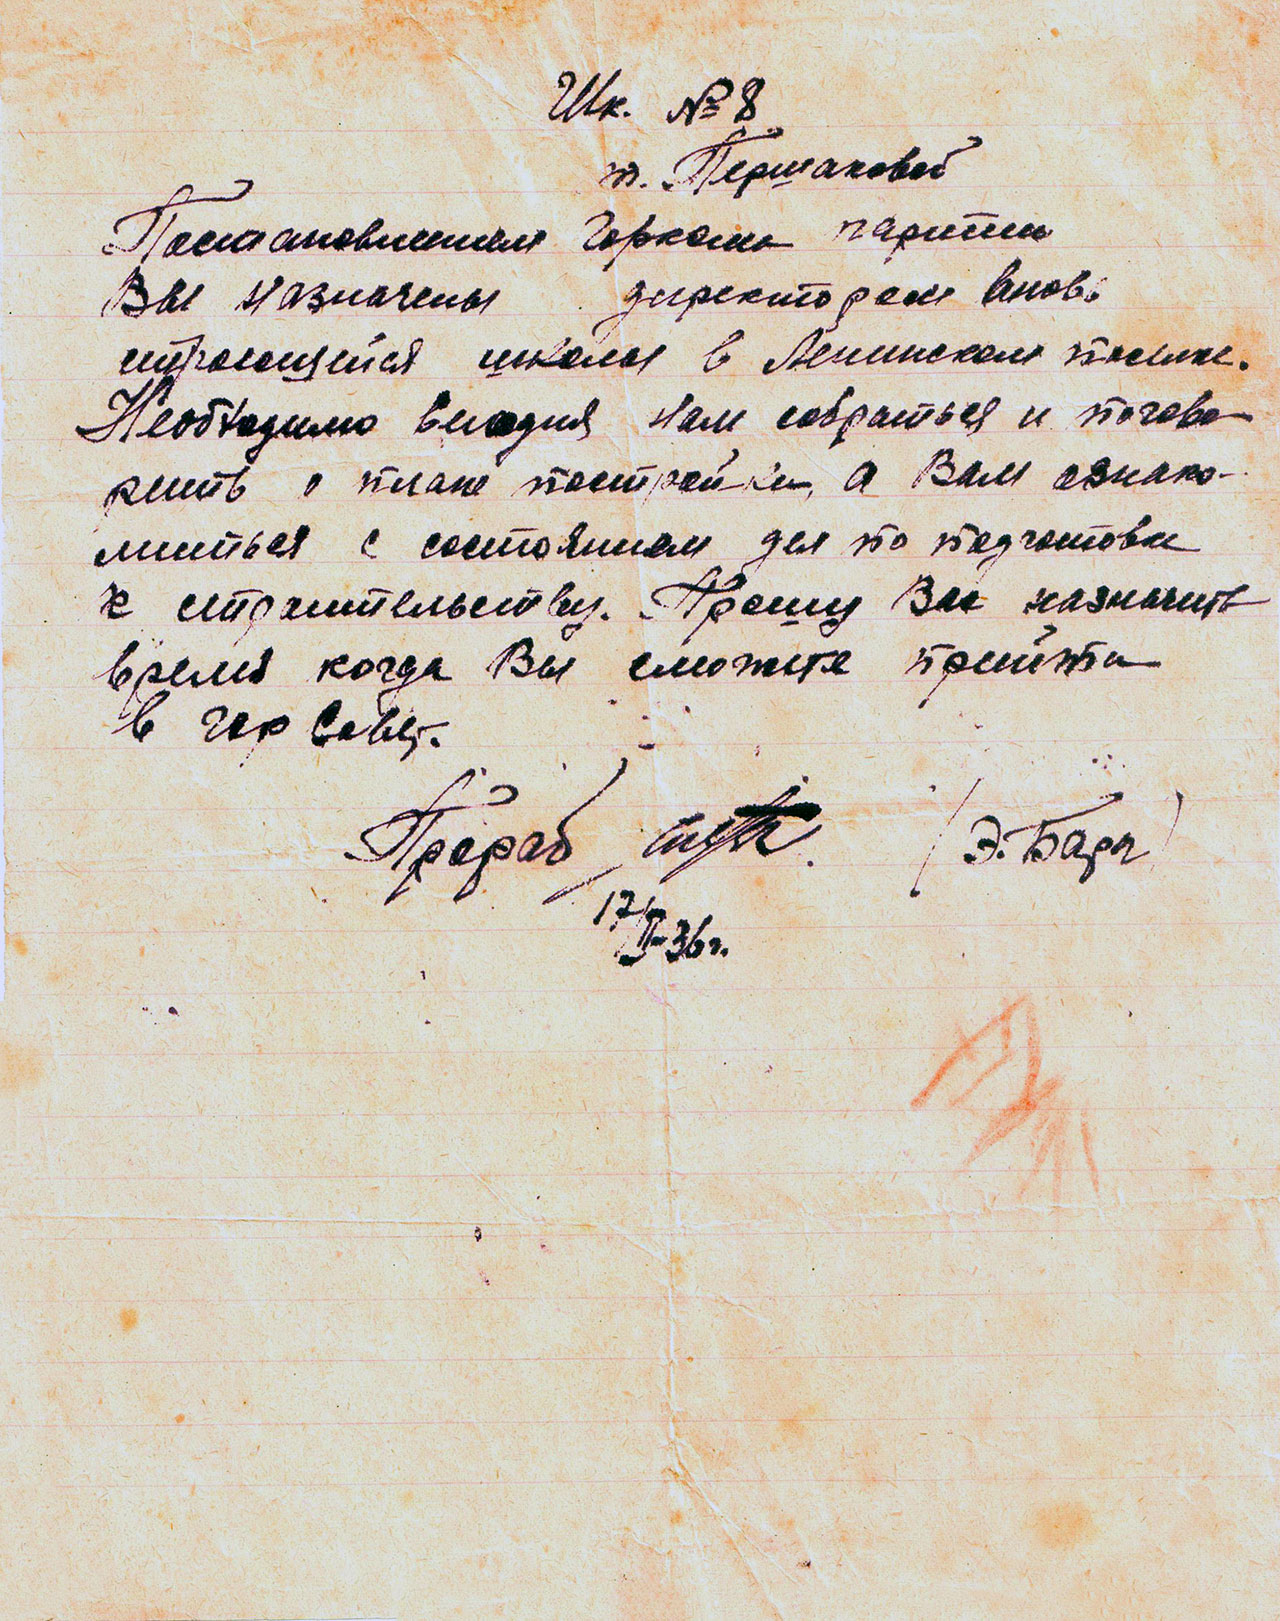 Шк. № 8
т. Першаковой
Постановлением Горкома партии
Вы назначены директором вновь
строющейся школы в Ленинском поселке.
Необходимо сегодня нам собраться и погово-
рить о плане постройки, а Вам ознако-
миться с состоянием дел по подготовке
к строительству. Прошу Вас назначить
время когда Вы сможете прийти
в гор Совет.
Прораб (Э. Барц)
17/II-36 г.